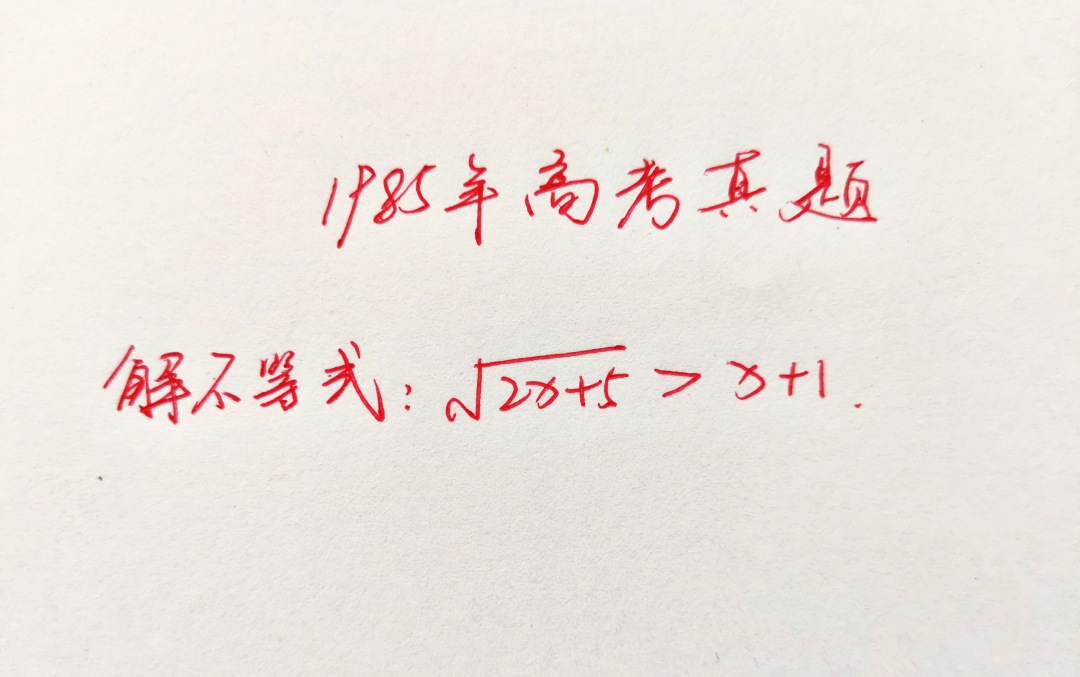 1985年高考真题
解不等式：√2x+5 > x+1.